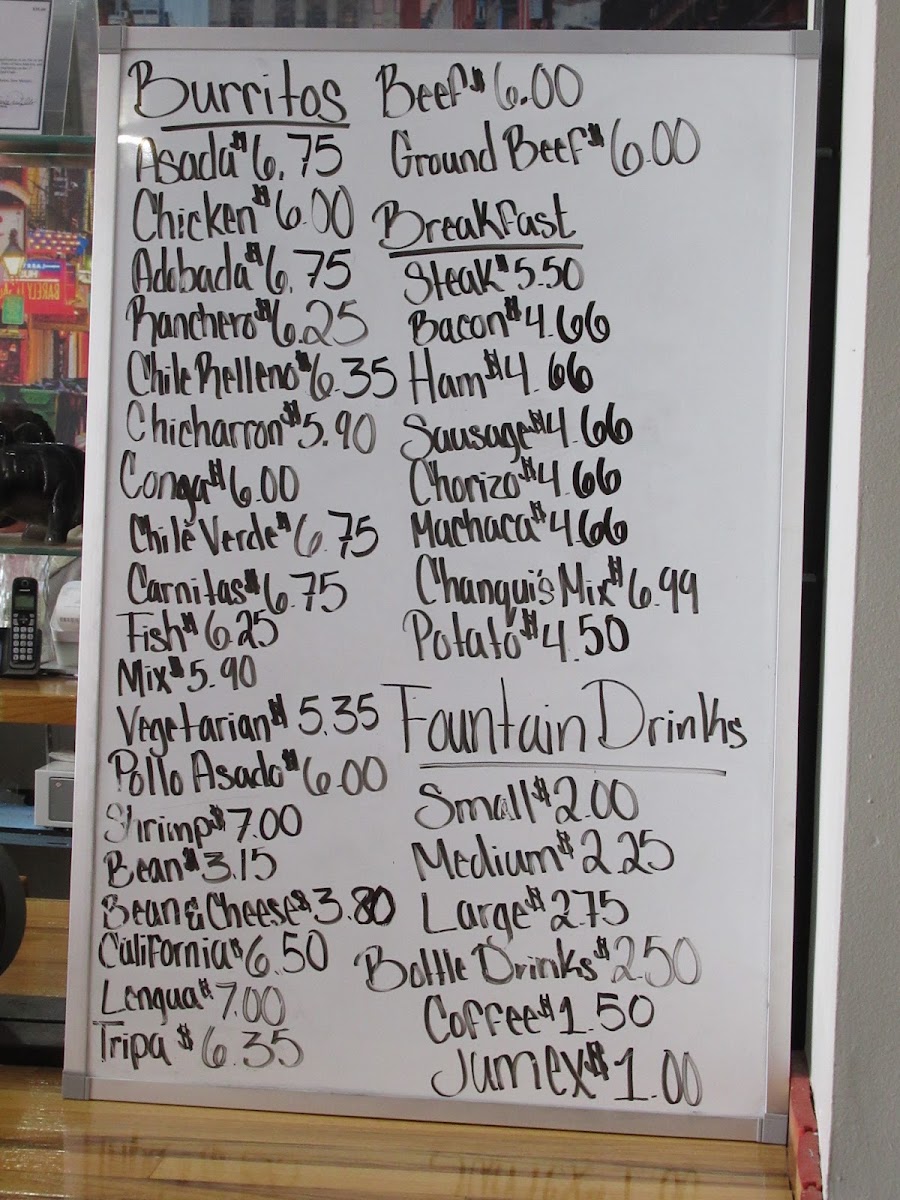 Burritos
Asada $6.75
Chicken $6.00
Adobada $6.75
Ranchero $6.25
Chile Relleno $6.35
Chicharron $5.90
Conga $6.00
Chile Verde $6.75
Carnitas $6.75
Fish $6.25
Mix $5.90
Vegetarian $5.35
Pollo Asado $6.00
Shrimp $7.00
Bean $3.15
Bean & Cheese $3.80
California $6.50
Lengua $7.00
Tripa $6.35
Beef $6.00
Ground Beef $6.00
Breakfast
Steak $5.50
Bacon $4.66
Ham $4.66
Sausage $4.66
Chorizo $4.66
Machaca $4.66
Changui's Mix $6.99
Potato $4.50
Fountain Drinks
Small $2.00
Medium $2.25
Large $2.75
Bottle Drinks $2.50
Coffee $1.50
Jumex $1.00